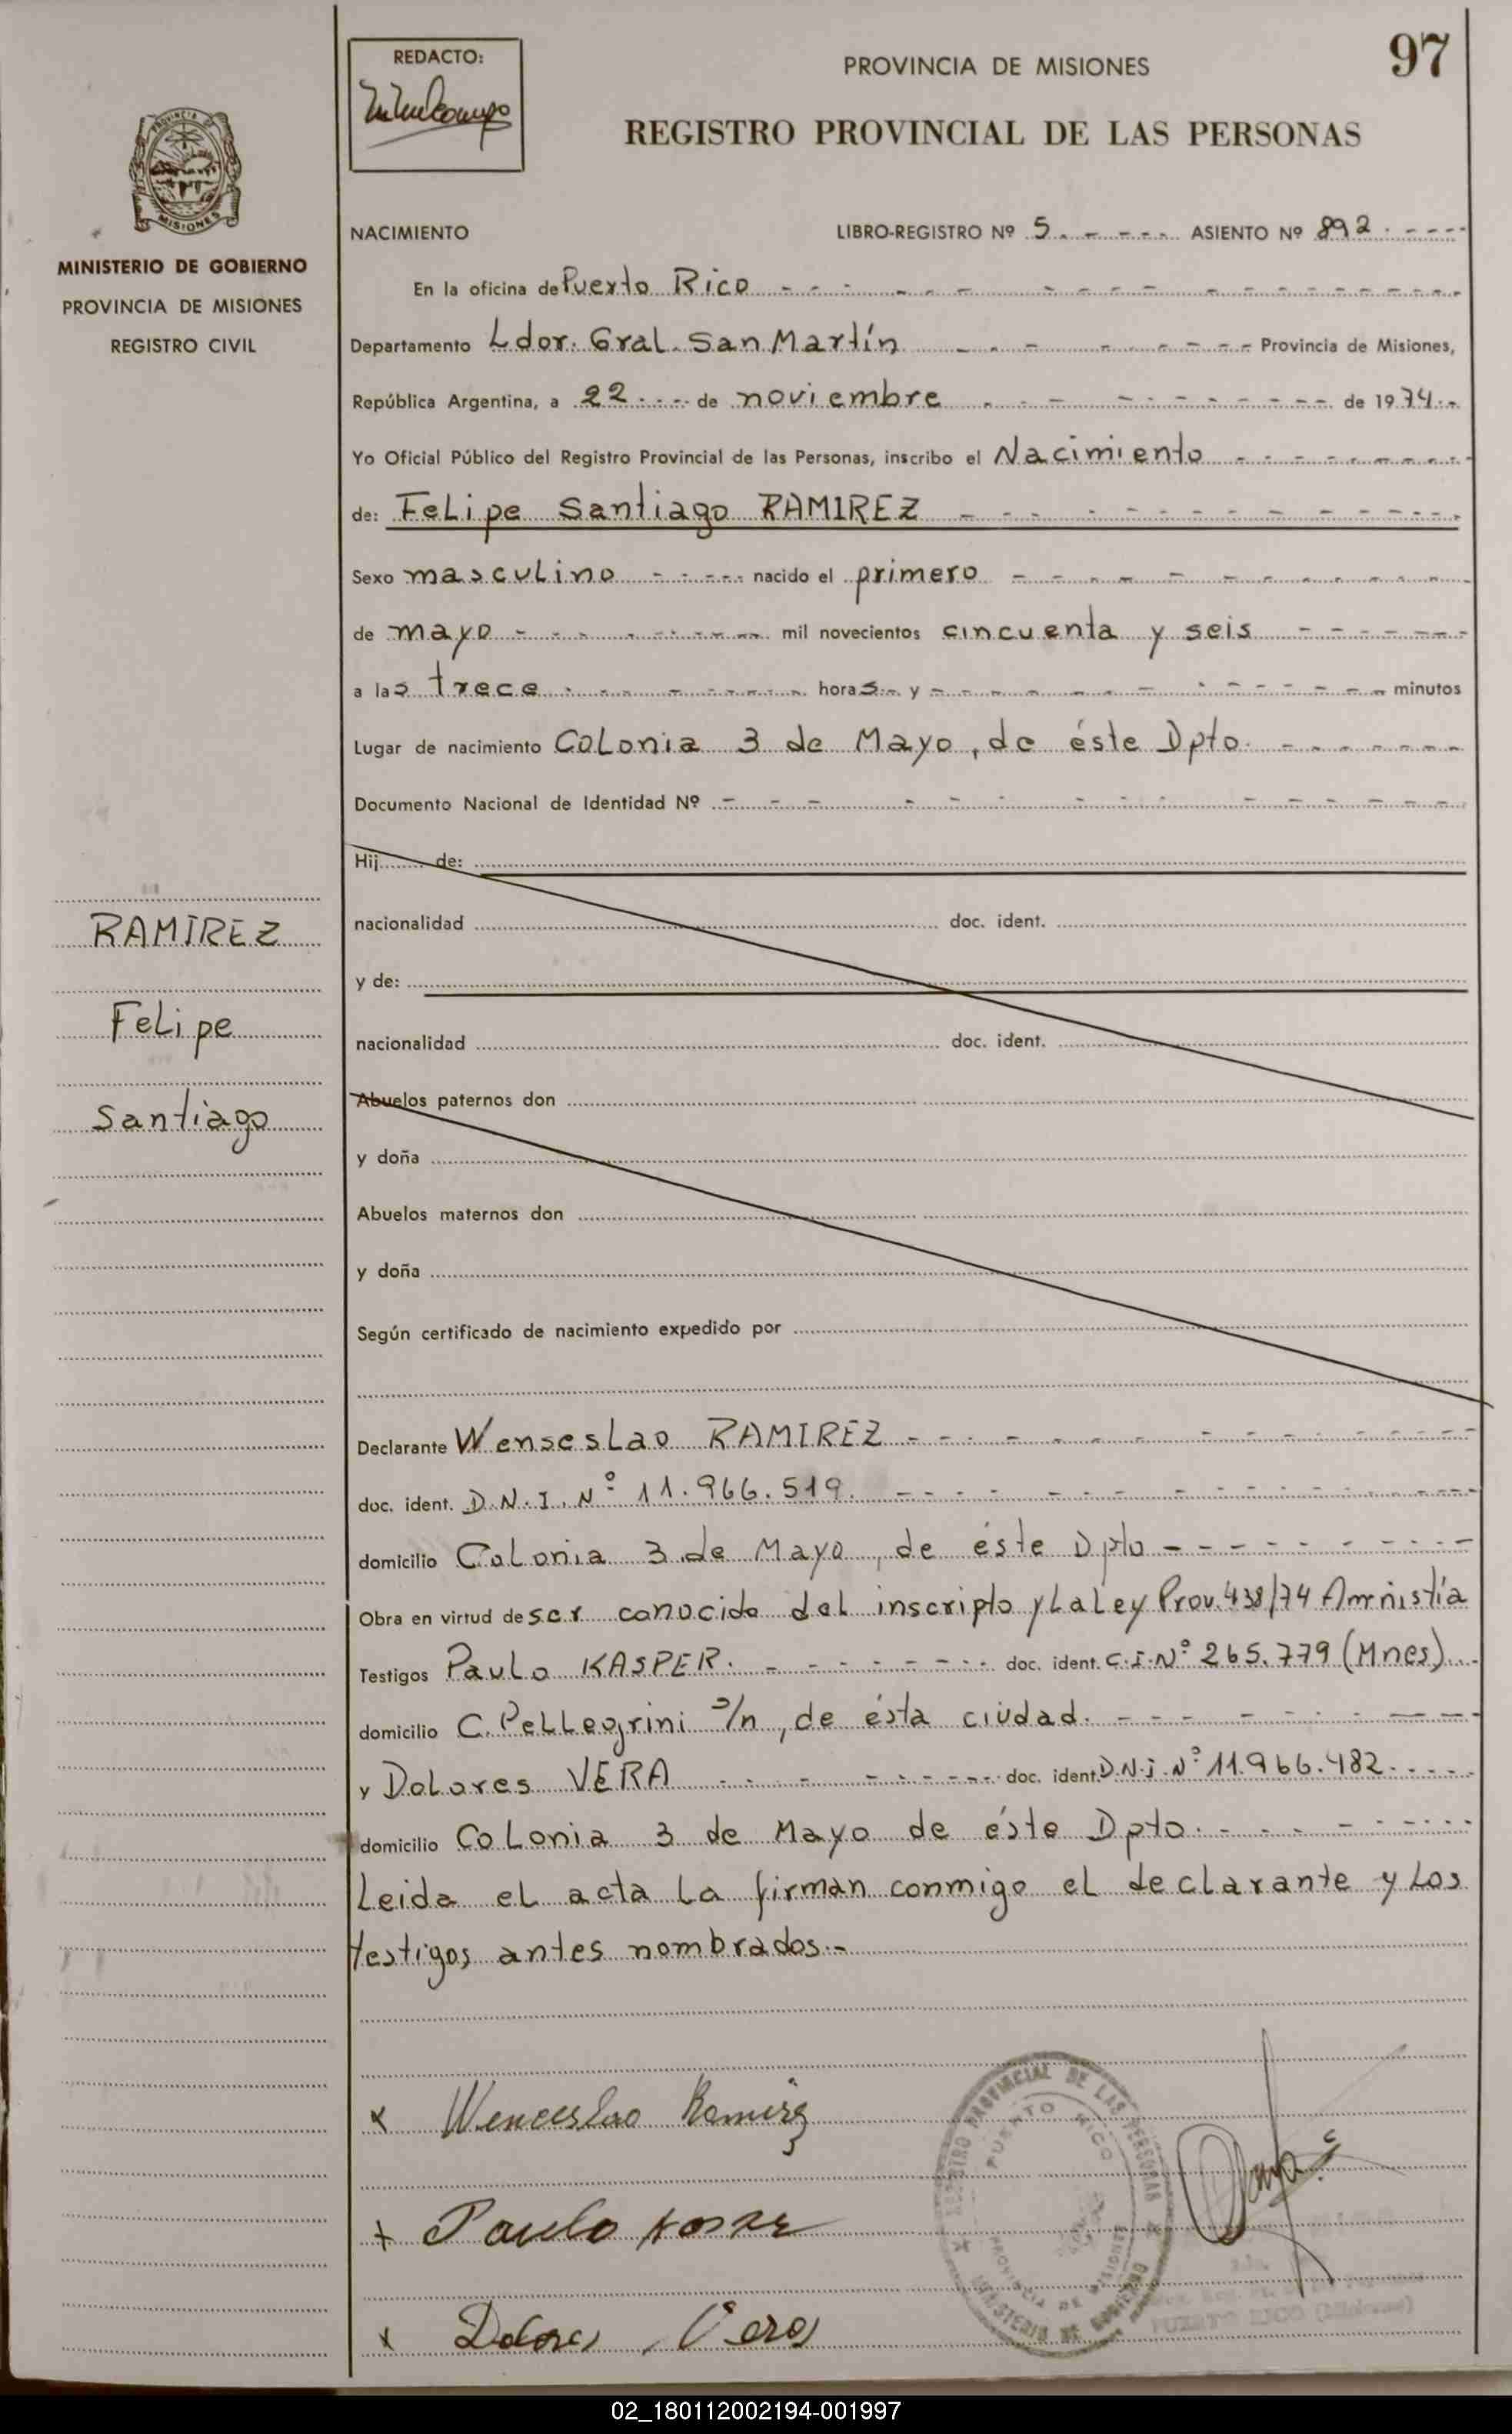 97
REDACTO:
PROVINCIA DE MISIONES
REGISTRO PROVINCIAL DE LAS PERSONAS
MISIONES
MINISTERIO DE GOBIERNO
PROVINCIA DE MISIONES
REGISTRO CIVIL
NACIMIENTO LIBRO-REGISTRO Nº 5 ASIENTO Nº 892
En la oficina de Puerto Rico
Departamento Ldor. Gral. San Martín Provincia de Misiones,
República Argentina, a 22 de noviembre de 1974
Yo Oficial Público del Registro Provincial de las Personas, inscribo el Nacimiento
de: Felipe Santiago RAMIREZ
Sexo masculino nacido el primero
de mayo mil novecientos cincuenta y seis
a las trece horas y minutos
Lugar de nacimiento Colonia 3 de Mayo, de éste Dpto.
Documento Nacional de Identidad Nº
Hij de:
nacionalidad doc. ident.
y de:
nacionalidad doc. ident.
Abuelos paternos don
y doña
Abuelos maternos don
y doña
Según certificado de nacimiento expedido por
RAMIREZ
Felipe
Santiago
Declarante Wenseslao RAMIREZ
doc. ident. D.N.I. Nº 11.966.519.
domicilio Colonia 3 de Mayo, de éste Dpto
Obra en virtud de ser conocido del inscripto y la Ley Prov. 438/74 Amnistía
Testigos Paulo KASPER. doc. ident. C.I. Nº 265.779 (Mnes)
domicilio C. Pellegrini s/n, de ésta ciudad.
y Dolores VERA doc. ident. D.N.i. Nº 11.966.482
domicilio Colonia 3 de Mayo de éste Dpto.
Leida el acta la firman conmigo el declarante y los
testigos antes nombrados.-
x Wenceslao Ramirez
+ Paulo
x Dolores Vera
REGISTRO PROVINCIAL DE LAS PERSONAS
PUERTO RICO
PROVINCIA DE MISIONES
MINISTERIO DE GOBIERNO
PUERTO RICO (Misiones)
02_180112002194-001997